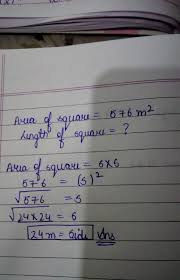 Area of square = 576 m²
Length of square = ?
Area of square = S×S
576 = (S)²
√576 = S
√24×24 = S
24m = Side Ans